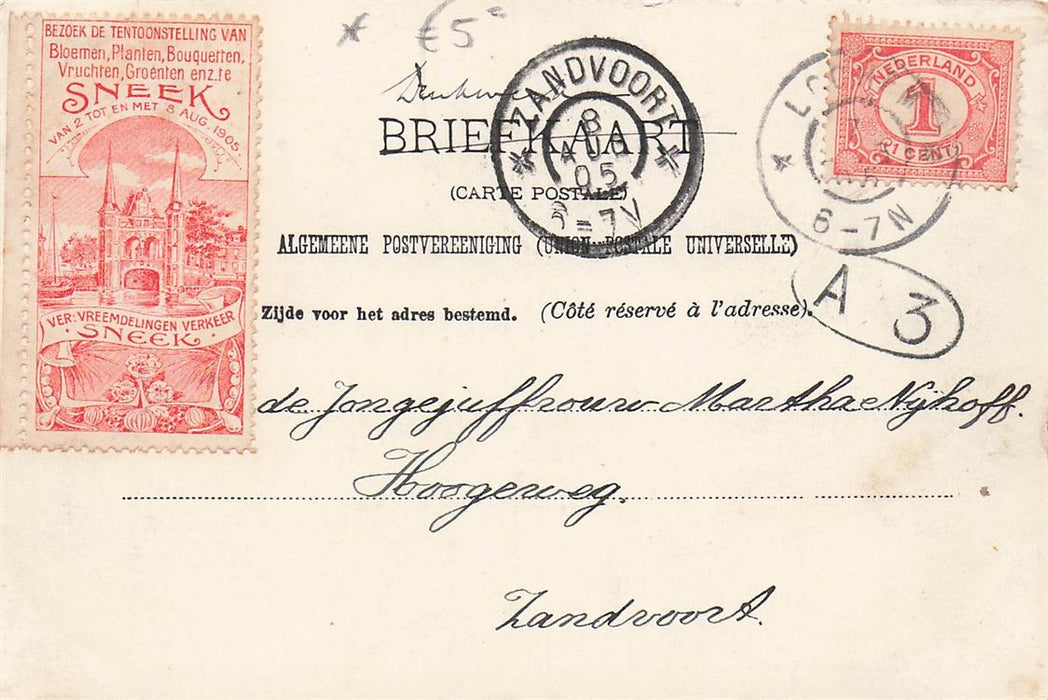 BEZOEK DE TENTOONSTELLING VAN
Bloemen, Planten, Bouquetten,
Vruchten, Groenten enz. te
SNEEK
VAN 2 TOT EN MET 8 AUG. 1905.
VER: VREEMDELINGEN VERKEER
SNEEK.
€5
ZANDVOORT
8
AUG
05
6-7V
NEDERLAND
1
1 CENT
6-7N
A 3
BRIEFKAART
(CARTE POSTALE)
ALGEMEENE POSTVEREENIGING (UNION POSTALE UNIVERSELLE)
Zijde voor het adres bestemd. (Côté réservé à l'adresse).
de Jongejuffrouw Martha Nijhoff.
Hoogerweg.
Zandvoort.